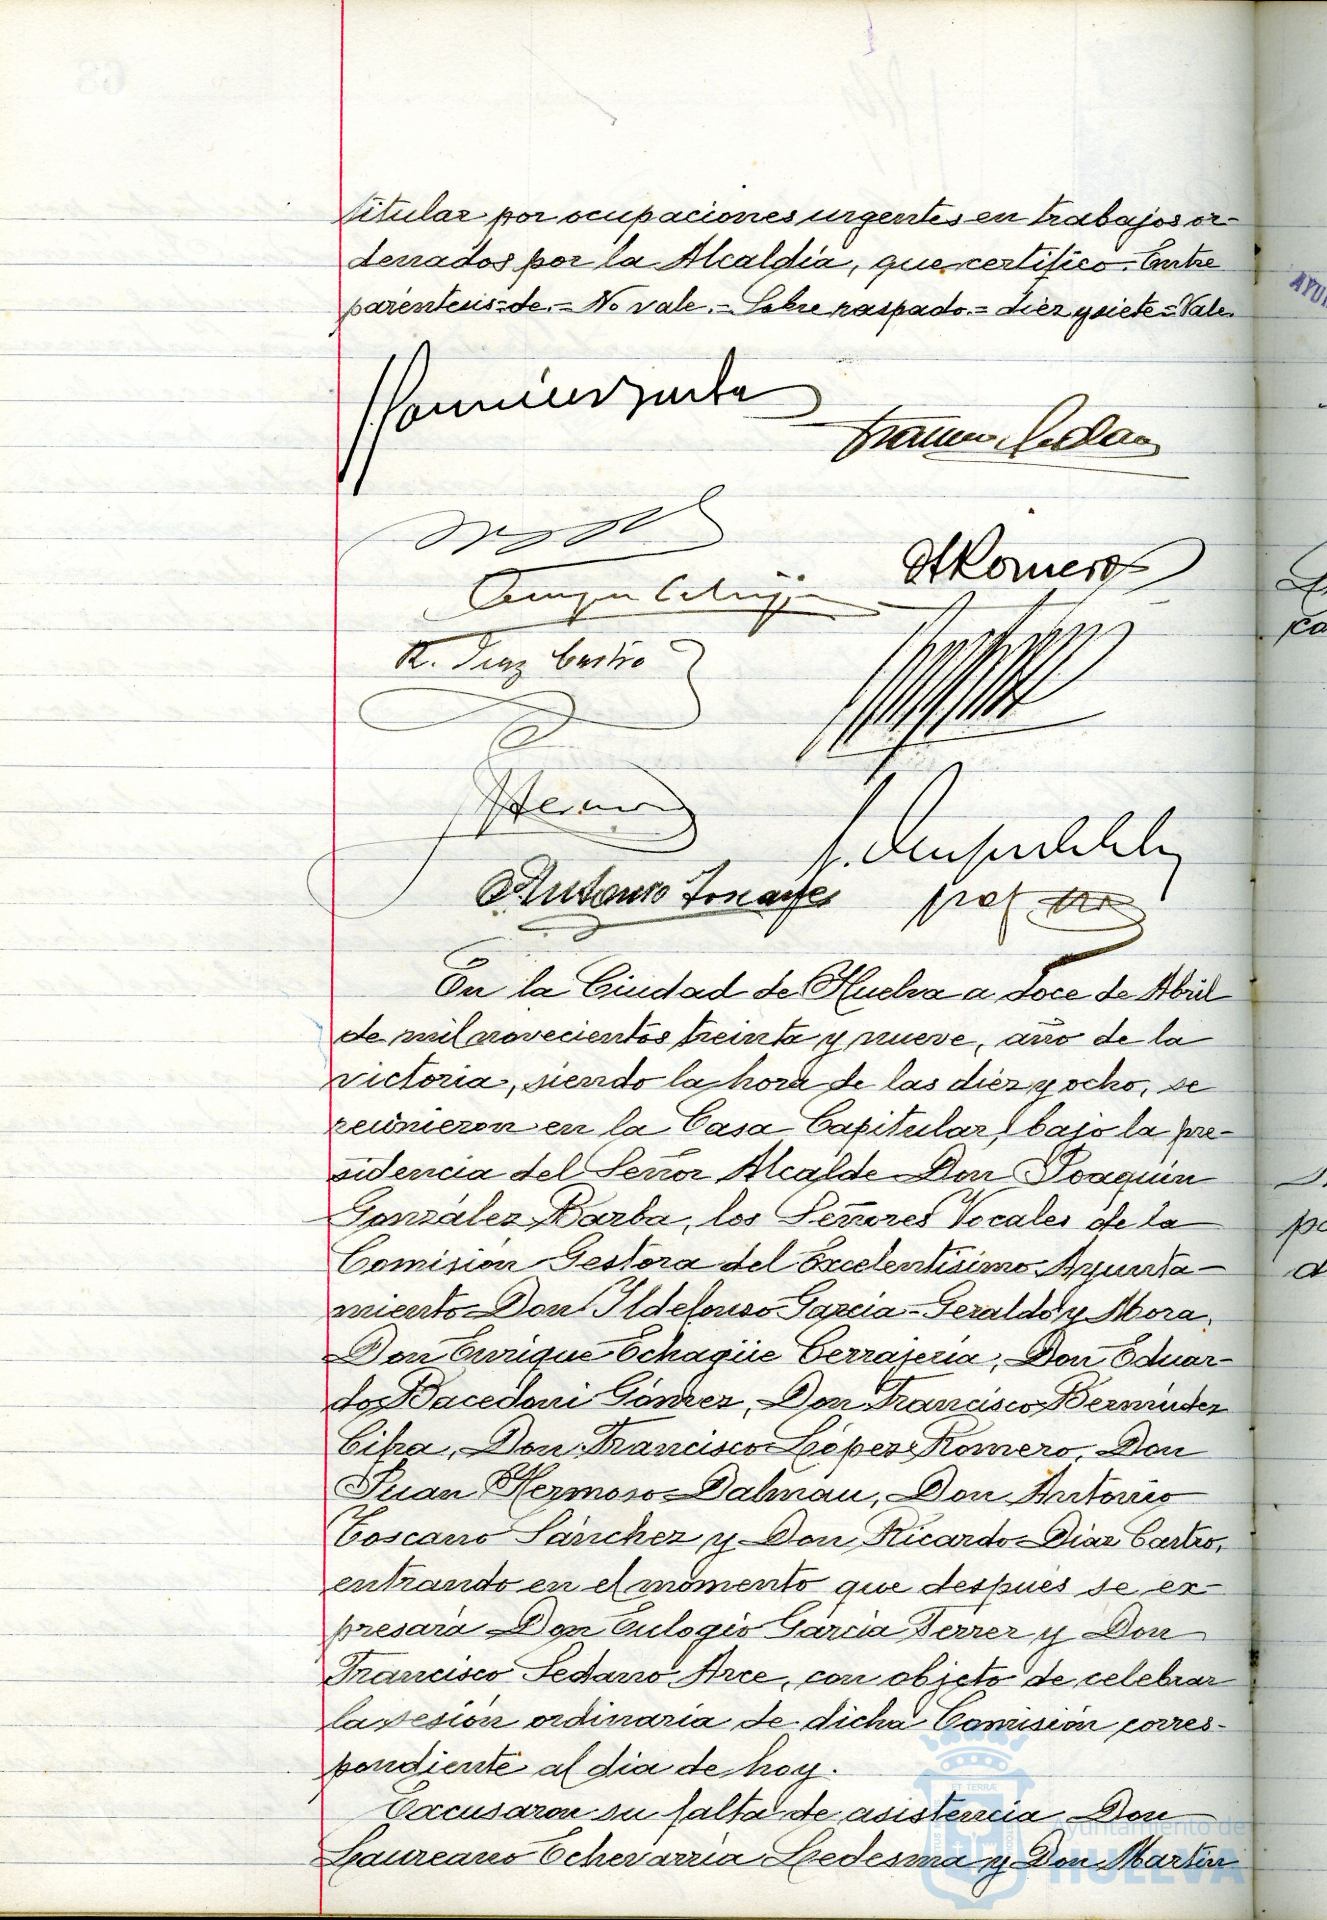 titular por ocupaciones urgentes en trabajos or-
denados por la Alcaldía, que certifico. Entre
paréntesis=de.= No vale.= Sobre raspado.= diez y siete= Vale.
A Romero
R. Diaz Castro
Antonio Toscano
En la Ciudad de Huelva a doce de Abril
de mil novecientos treinta y nueve, año de la
victoria, siendo la hora de las diez y ocho, se
reunieron en la Casa Capitular, bajo la pre-
sidencia del Señor Alcalde Don Joaquín
González Barba, los Señores Vocales de la
Comisión Gestora del Excelentísimo Ayunta-
miento Don Ildefonso García-Geraldo y Mora,
Don Enrique Echagüe Cerrajería, Don Eduar-
do Bacedoni Gómez, Don Francisco Bermúdez
Cifra, Don Francisco López Romero, Don
Juan Hermoso Dalmau, Don Antonio
Toscano Sánchez y Don Ricardo Díaz Castro,
entrando en el momento que después se ex-
presará Don Eulogio García Ferrer y Don
Francisco Sedano Arce, con objeto de celebrar
la sesión ordinaria de dicha Comisión corres-
pondiente al dia de hoy.
Excusaron su falta de asistencia Don
Laureano Echevarría Ledesma y Don Martín
Ayuntamiento de
HUELVA